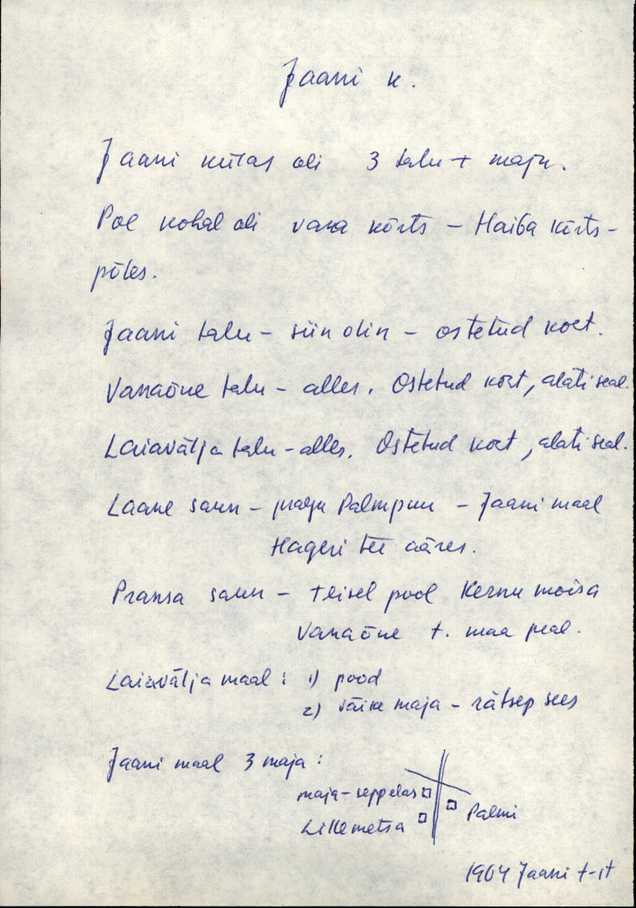 Jaani k.
Jaani külas oli 3 talu + maju.
Poe kohal oli vana kõrts – Haiba kõrts –
põles.
Jaani talu – siin olin – ostetud koct.
Vanaõue talu – alles. Ostetud koct, alati seal.
Laiavälja talu – alles. Ostetud koct, alati seal.
Laane saun – praegu Palmpuu – Jaani maal
Hageri tee ääres.
Pransa saun – teisel pool Kernu mõisa
Vanaõue t. maa peal.
Laiavälja maal: 1) pood
2) väike maja – rätsep sees
Jaani maal 3 maja:
maja – seppelas
Lillemetsa
Palmi
1904 Jaani t-st